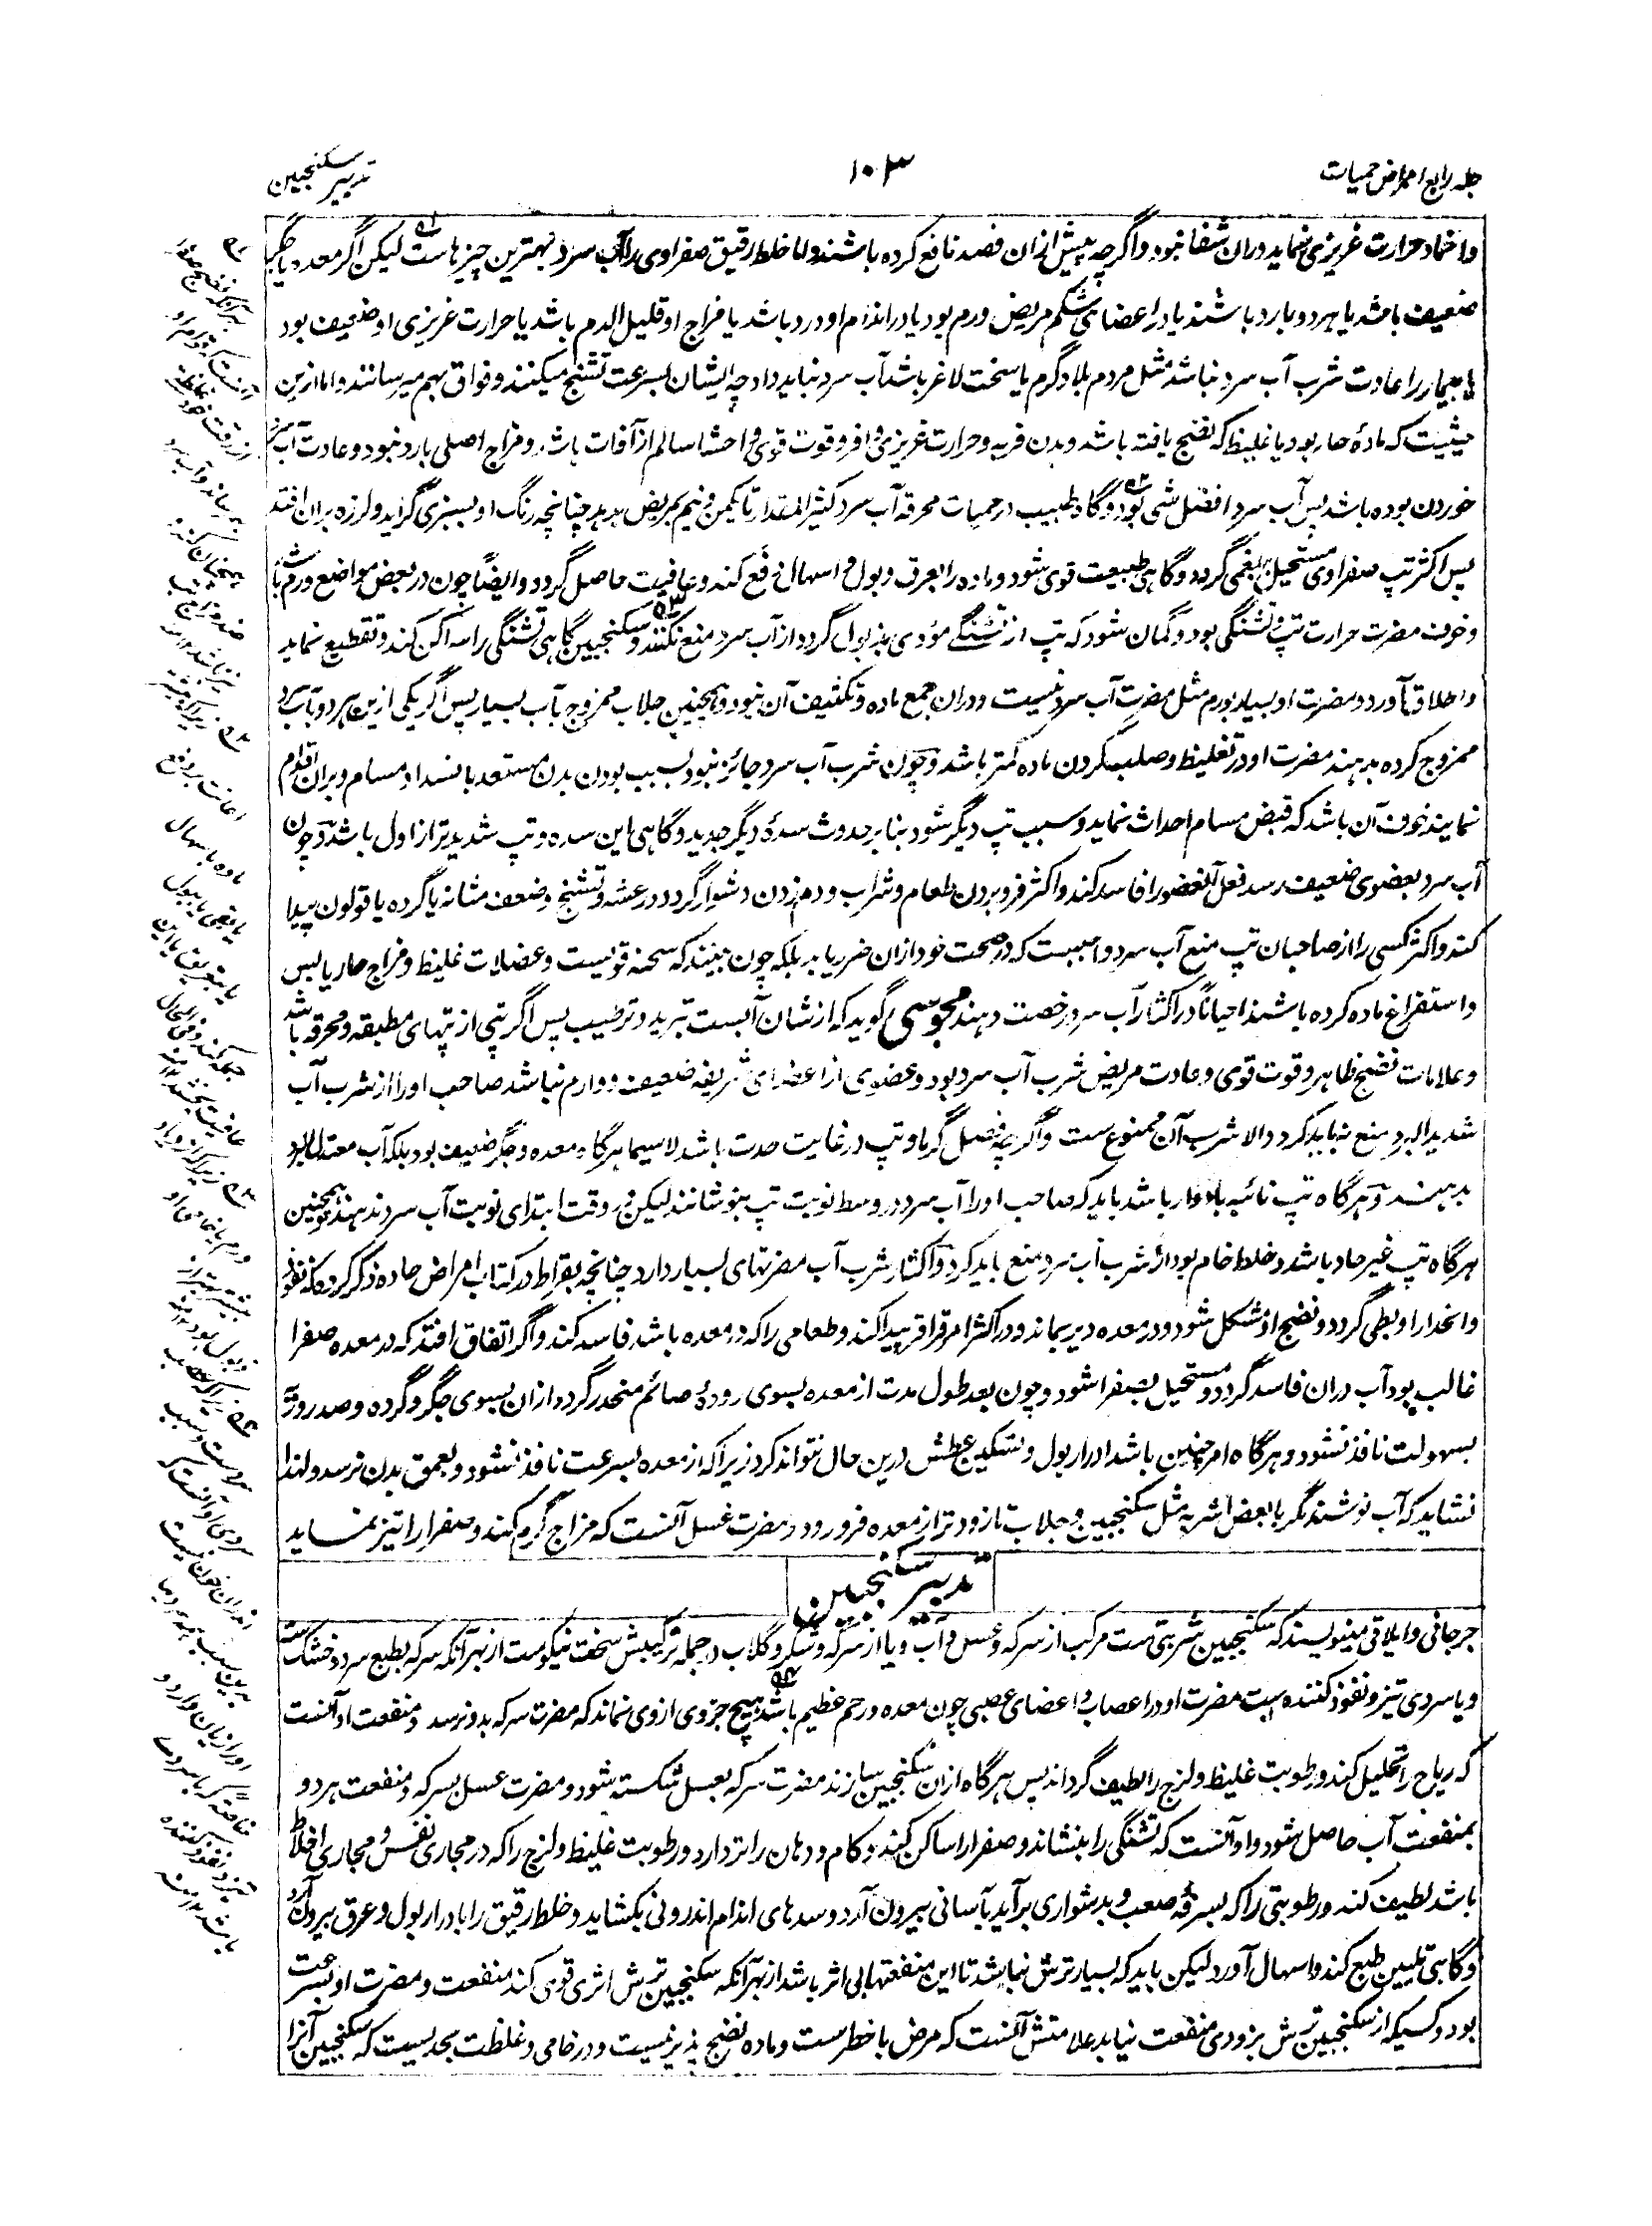 جلد رابع امراض حمیات
۱۰۳
تدبیر سکنجبین
واخماد حرارت غریزی نماید دران شفا نبود واگرچه پیش ازان فصد نافع کرده باشند واما خلط رقیق صفراوی را آب سرد بهترین چیزهاست لیکن اگر معده یا جگر
ضعیف باشد یا هر دو بارد باشند یا در اعضای شکم مریض ورم بود یا در اندام او درد باشد یا مزاج او قلیل الدم باشد یا حرارت غریزی او ضعیف بود
یا بیمار را عادت شرب آب سرد نباشد مثل مردم بلاد گرم یا سخت لاغر باشد آب سرد نباید داد چه ایشان بسرعت تشنج میکنند و فواق بهم میرسانند واما ازین
حیثیت که مادۀ حار بود یا غلیظ که نضج یافته باشد و بدن فربه و حرارت غریزی وافر و قوت قوی و احشا سالم از آفات باشد و مزاج اصلی بارد نبود و عادت آب سرد
خوردن بوده باشد پس آب سرد افضل شی بود و گاه طبیب در حمیات محرقه آب سرد کثیر المقدار تا یکمن و نیم بمریض بدهد چنانچه رنگ او بسبزی گراید و لرزه بران افتد
پس اکثر تپ صفراوی مستحیل ببلغمی گردد و گاهی طبیعت قوی شود و ماده را بعرق و بول و اسهال دفع کند و عافیت حاصل گردد وایضًا چون در بعض مواضع ورم باشد
و خوف مضرت حرارت تپ و تشنگی بود و گمان شود که تپ از تشنگی مؤدی بذبول گردد از آب سرد منع نکنند و سکنجبین گاهی تشنگی را ساکن کند و تقطیع نماید
و اطلاق آورد و مضرت او بسیار بورم مثل مضرت آب سرد نیست و دران جمع ماده و تکثیف آن نبود و همچنین جلاب ممزوج بآب بسیار پس اگر یکی ازین هر دو بآب سرد
ممزوج کرده بدهند مضرت او در تغلیظ و صلب کردن ماده کمتر باشد و چون شرب آب سرد جائز نبود بسبب بودن بدن مستعد بانسداد مسام و بران اقدام
نمایند خوف آن باشد که قبض مسام احداث نماید و سبب تپ دیگر شود بنا بر حدوث سدۀ دیگر جدید و گاهی این سده و تپ شدیدتر از اول باشد و چون
آب سرد بعضوی ضعیف رسد فعل آنعضو را فاسد کند و اکثر فرو بردن طعام و شراب و دم زدن دشوار گردد و رعشه و تشنج و ضعف مثانه یا گرده یا قولون پیدا
کند و اکثر کسی را از صاحبان تپ منع آب سرد واجبست که در صحت خود ازان ضرر یابد بلکه چون بینند که سحنه قویست و عضلات غلیظ و مزاج حار یابس
و استفراغ ماده کرده باشند احیانًا در اکثار آب سرد رخصت دهند مجوسی گوید که از شان آبست تبرید و ترطیب پس اگر تپی از تپهای مطبقه و محرقه باشد
و علامات نضج ظاهر و قوت قوی و عادت مریض شرب آب سرد بود و عضوی از اعضای شریفه ضعیف و وارم نباشد صاحب او را از شرب آب
شدید البرد منع نباید کرد والا شرب آن ممنوع ست واگرچه فصل گرما و تپ در غایت حدت باشد لاسیما هرگاه معده و جگر ضعیف بود بلکه آب معتدل البرد
بدهند و هرگاه تپ نائبه بادوار باشد باید که صاحب او را آب سرد در وسط نوبت تپ بنوشانند لیکن در وقت ابتدای نوبت آب سرد ندهند و همچنین
هرگاه تپ غیر حاد باشد و خلط خام بود از شرب آب سرد منع باید کرد و اکثار شرب آب مضرتهای بسیار دارد چنانچه بقراط در کتاب امراض حاده ذکر کرده که نفوذ
و انحدار او بطی گردد و نضج او مشکل شود و در معده دیر بماند و در اکثر امر قراقر پیدا کند و طعامی را که در معده باشد فاسد کند و اگر اتفاق افتد که در معده صفرا
غالب بود آب دران فاسد گردد و مستحیل بصفرا شود و چون بعد طول مدت از معده بسوی رودۀ صائم منحدر گردد ازان بسوی جگر و گرده و صدر و
بسهولت نافذ نشود و هرگاه امر چنین باشد ادرار بول و تسکین عطش درین حال نتواند کرد زیرا که از معده بسرعت نافذ نشود و بعمق بدن نرسد و لهذا
نشاید که آب نوشند مگر با بعض اشربه مثل سکنجبین و جلاب تا زودتر از معده فرو رود و مضرت عسل آنست که مزاج گرم کند و صفرا را تیز نماید
تدبیر سکنجبین
جرجانی و ایلاقی مینویسند که سکنجبین شربتی ست مرکب از سرکه و عسل و آب و یا از سرکه و شکر و گلاب در جمله ترکیبش سخت نیکوست از بهر آنکه سرکه بطبع سرد و خشک ست
و با سردی تیز و نفوذ کننده است مضرت او در اعصاب و اعضای عصبی چون معده و رحم عظیم باشد هیچ جزوی از وی نماند که مضرت سرکه بدو نرسد و منفعت او آنست
که ریاح را تحلیل کند و رطوبت غلیظ و لزج را لطیف گرداند پس هرگاه ازان سکنجبین سازند مضرت سرکه بعسل شکسته شود و مضرت عسل بسرکه و منفعت هر دو
بمنفعت آب حاصل شود و او آنست که تشنگی را بنشاند و صفرا را ساکن کند و کام و دهان را تر دارد و رطوبت غلیظ و لزج را که در مجاری نفس و مجاری اخلاط
باشد لطیف کند و رطوبتی را که بسرفۀ صعب و بدشواری برآید بآسانی بیرون آرد و سدهای اندام اندرونی بکشاید و خلط رقیق را بادرار بول و عرق بیرون آرد
و گاهی تلیین طبع کند و اسهال آورد لیکن باید که بسیار ترش نباشد تا این منفعتها بی اثر باشد از بهر آنکه سکنجبین ترش اثری قوی کند منفعت و مضرت او بسرعت
بود و کسیکه از سکنجبین ترش بزودی منفعت نیابد علامتش آنست که مرض با خطرست و ماده نضج پذیر نیست و در خامی و غلظت بحدیست که سکنجبین آنرا